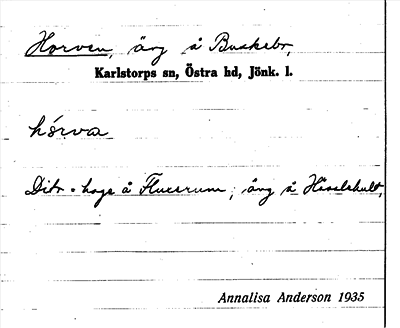 Horven, äng å Buskebr,
Karlstorps sn, Östra hd, Jönk. l.
hórva
Dito. hage å Fluxerum, äng å Hässlehult,
Annalisa Anderson 1935